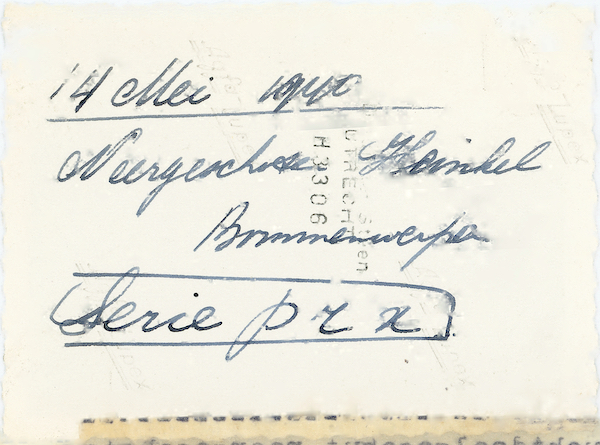 14 Mei 1940
Neergeschoten Heinkel
Bommenwerper
Serie p z x
UTRECHT
H3306